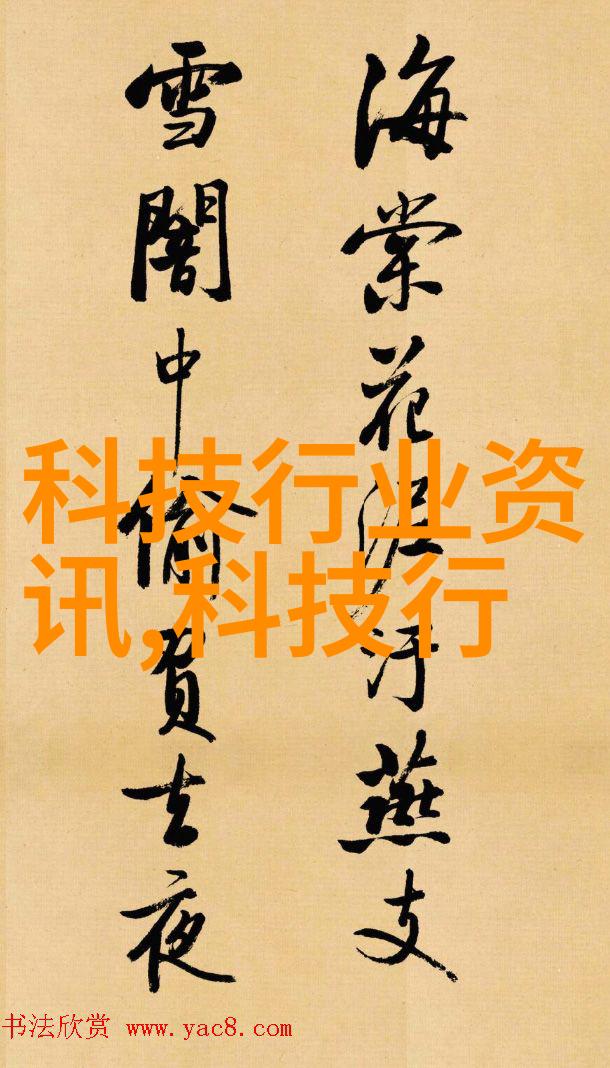 海棠花泥汙燕支
雪闇中偷負去夜
科技行业资
讯,科技行
书法欣赏 www.yac8.com